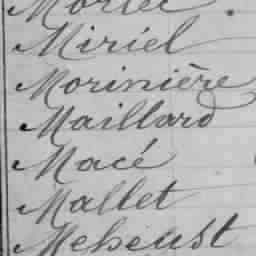 Miriel
Morinière
Maillard
Macé
Mallet
Meheust